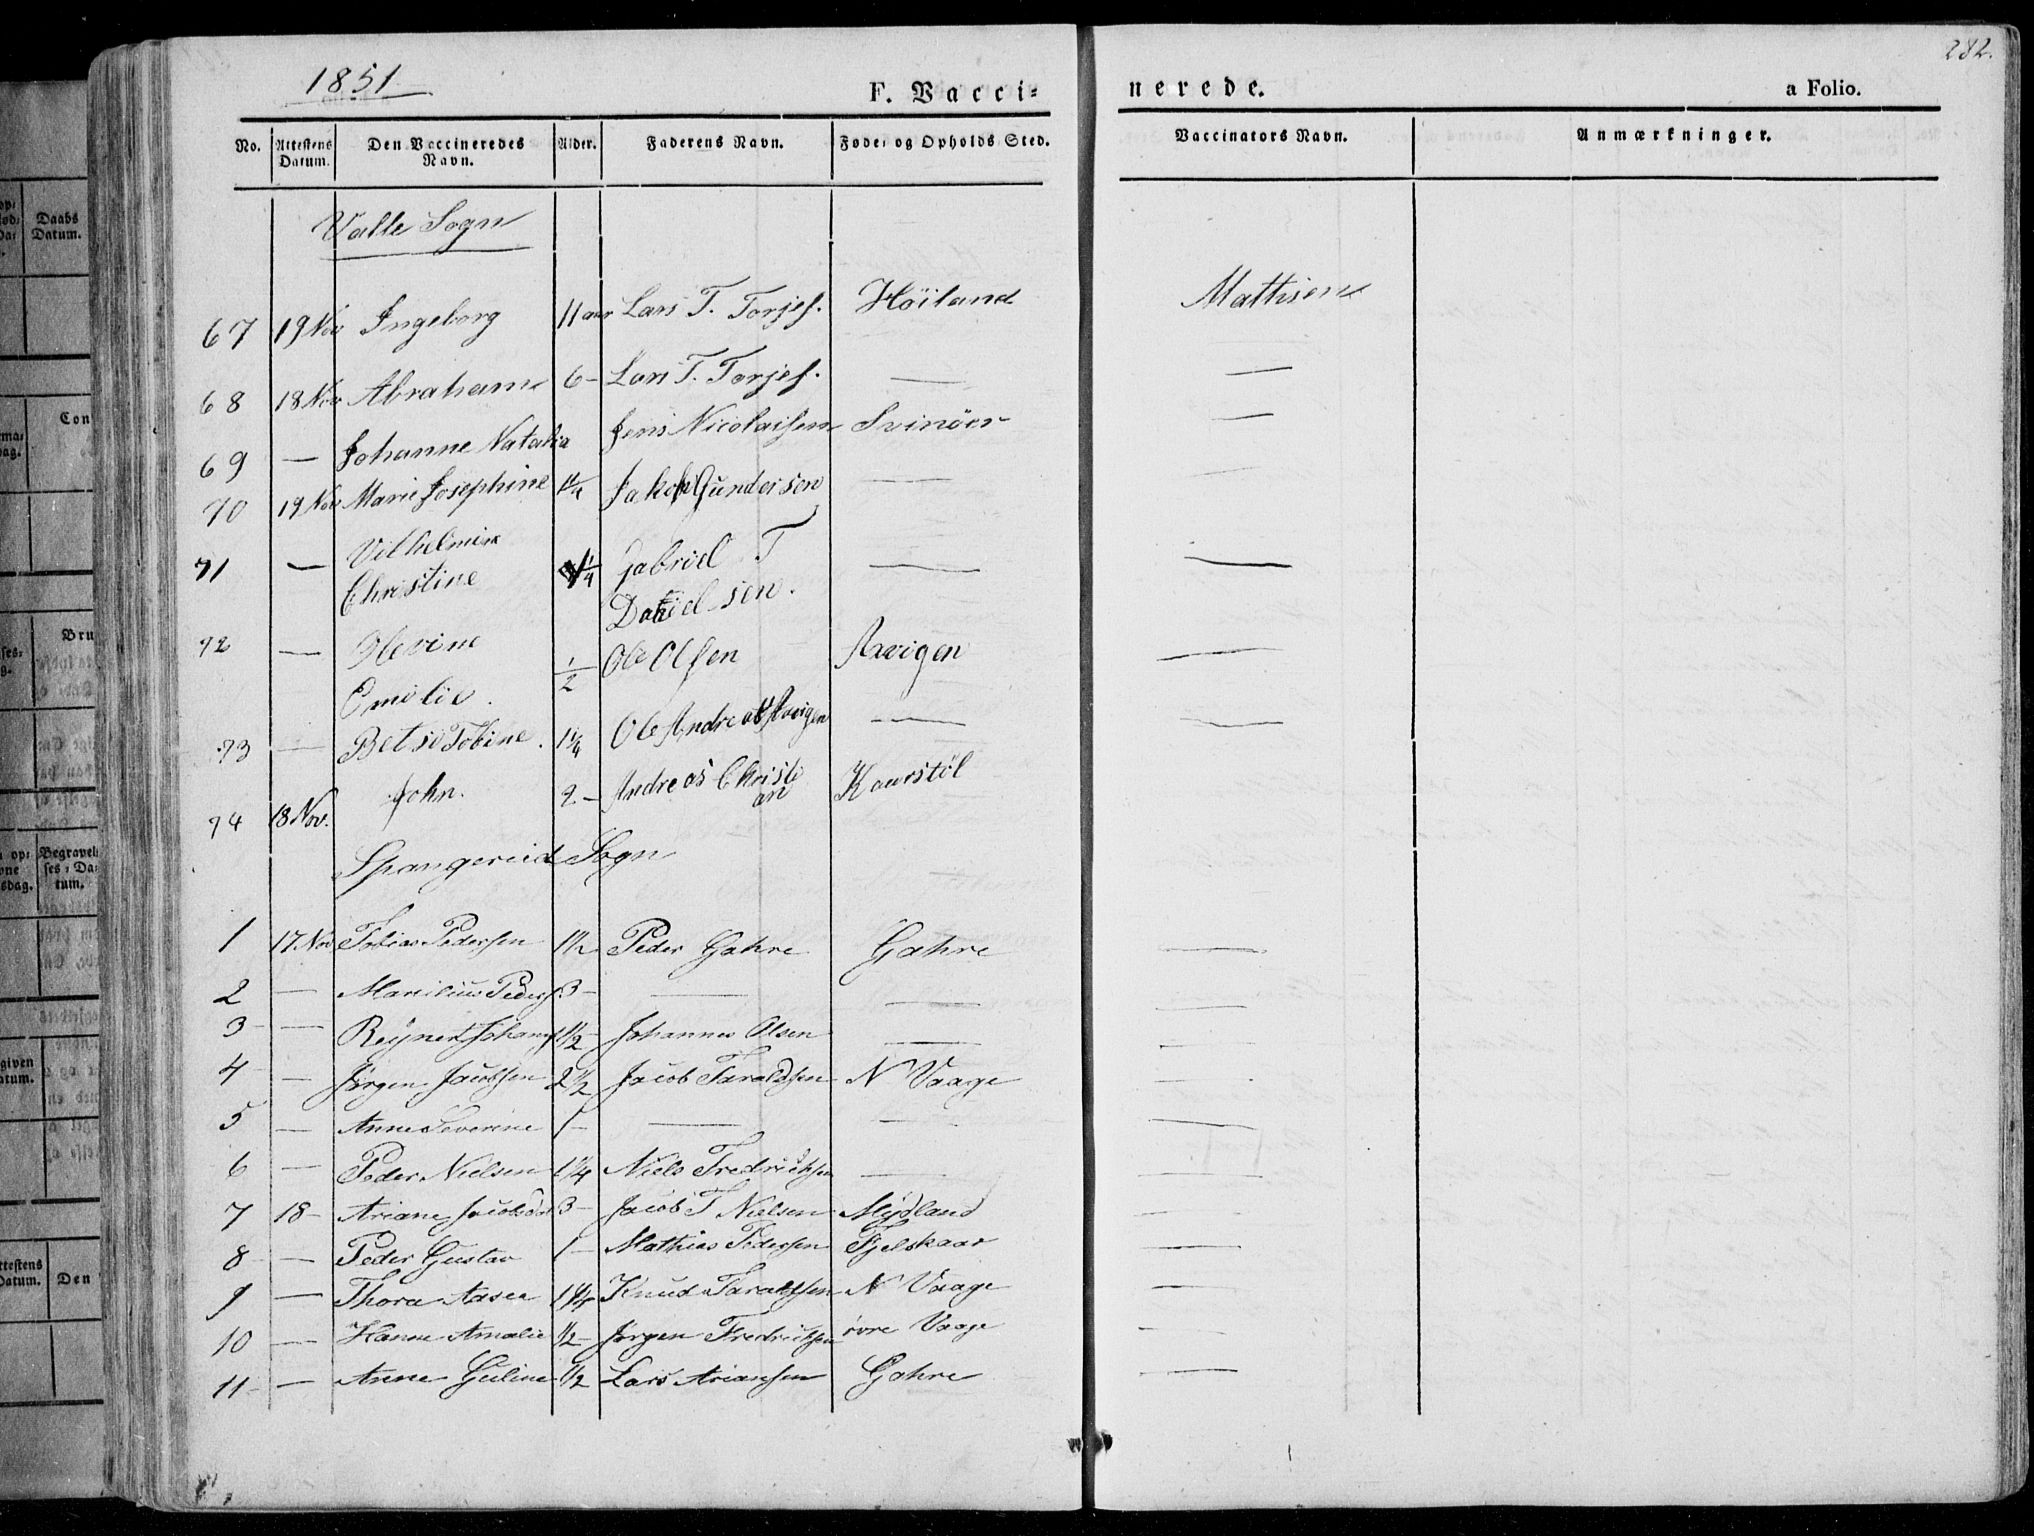 1851
F. Vacci-
nerede.
a Folio.
282.
No.
Attestens Datum.
Den Vaccineredes Navn.
Alder.
Faderens Navn.
Føde- og Opholds Sted.
Vaccinators Navn.
Anmærkninger.
Valle Sogn
67 19 Nov Ingeborg 11 aar Lars T. Torjes. Höiland Mathisen
68 18 Nov Abraham 6 – Lars T. Torjes. — —
69 — Johanne Natalia Jens Nicolaisen Svinöer —
70 19 Nov Marie Josephine Jakob Gundersen — —
71 — Vilhelmine Christine 1/4 Gabriel T Danielsen. — —
72 — Olevine Emilie. 1/2 Ole Olsen Aavigen —
73 — Betsi Tobine. 1 1/4 Ole Andreas Aavigen — —
74 18 Nov. John. 2 – Andreas Christian Kaurstöl
Spangereid Sogn
1 17 Nov Tobias Pedersen 1 1/2 Peder Gahre Gahre —
2 — Marilius Peders. 3 – — — —
3 — Reynert Johans 1 1/2 Johannes Olsen — —
4 — Jörgen Jacobsen 2 1/2 Jacob Taraldsen N Vaage —
5 — Anne Severine 1 – — — —
6 — Peder Nielsen 1 1/4 Niels Fredriksen — —
7 18 – Ariane Jacobsd 3 – Jacob T Nielsen Mydland —
8 — Peder Gustav 1 – Mathias Pedersen Fjelskaar —
9 — Thora Aasee 1 1/4 Knud Taraldsen N Vaage —
10 — Hanne Amalie 1/2 – Jörgen Fredriksen övre Vaage —
11 — Anne Guline 1/2 Lars Ariansen Gahre —